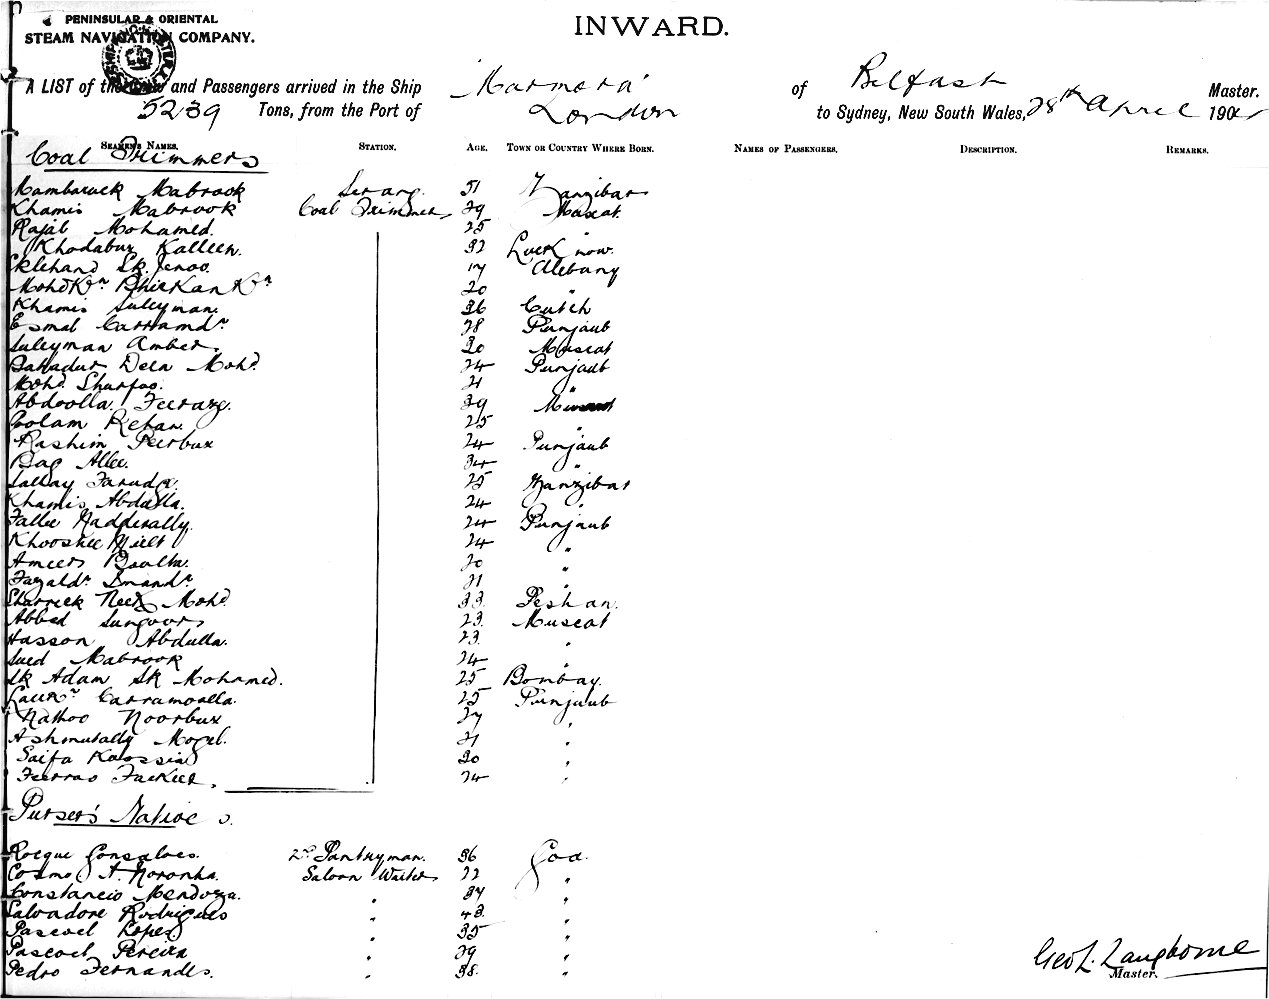 PENINSULAR & ORIENTAL
STEAM NAVIGATION COMPANY.
INWARD.
A LIST of the Crew and Passengers arrived in the Ship "Marmora" of Belfast Master.
5239 Tons, from the Port of London to Sydney, New South Wales, 28th April 190
SEAMEN'S NAMES. STATION. AGE. TOWN OR COUNTRY WHERE BORN. NAMES OF PASSENGERS. DESCRIPTION. REMARKS.
Coal Trimmers
Mambaruck Mabrook Serang 51 Zanzibar
Khamis Mabrook Coal Trimmer 29 Muscat
Rajab Mohamed. 25 "
Khodabux Kalleen. 32 Lucknow.
Sk. Jenoo. 17
20 "
Khamis Suleyman. 36 Cutch
Esmal 28 Punjaub
Suleyman Amber. 30 Muscat
Bahadur Deen Mohd. 24 Punjaub
Mohd. 21 "
Abdoolla Feeraz. 39
Golam Rehan. 25 "
Rashim Peerbux 24 Punjaub
Bag Allee. 34 "
25 Zanzibar
Khamis Abdulla. 24 "
Fallee 24 Punjaub
24 "
Ameer 20 "
21 "
Mohd. 33
Abbed 23 Muscat
Hasson Abdulla. 23 "
Sued Mabrook 24 "
Sk Adam Sk Mohamed. 25 Bombay.
Carramoolla. 25 Punjaub
Nathoo Noorbux 27 "
Ashmutally Mogul. 21 "
Saifa 30 "
24 "
Purser's Natives.
Roeque Gonsalves. 2nd Pantryman. 36 Goa.
Cosmo A. Noronha. Saloon Waiter 22 "
Constancio Mendoza. " 34 "
Salvadore Rodrigues " 43 "
Pascoel Lopes " 35 "
Pascoel Pereira " 29 "
Pedro Fernandes. " 38 "
Geo L. Langborne
Master.